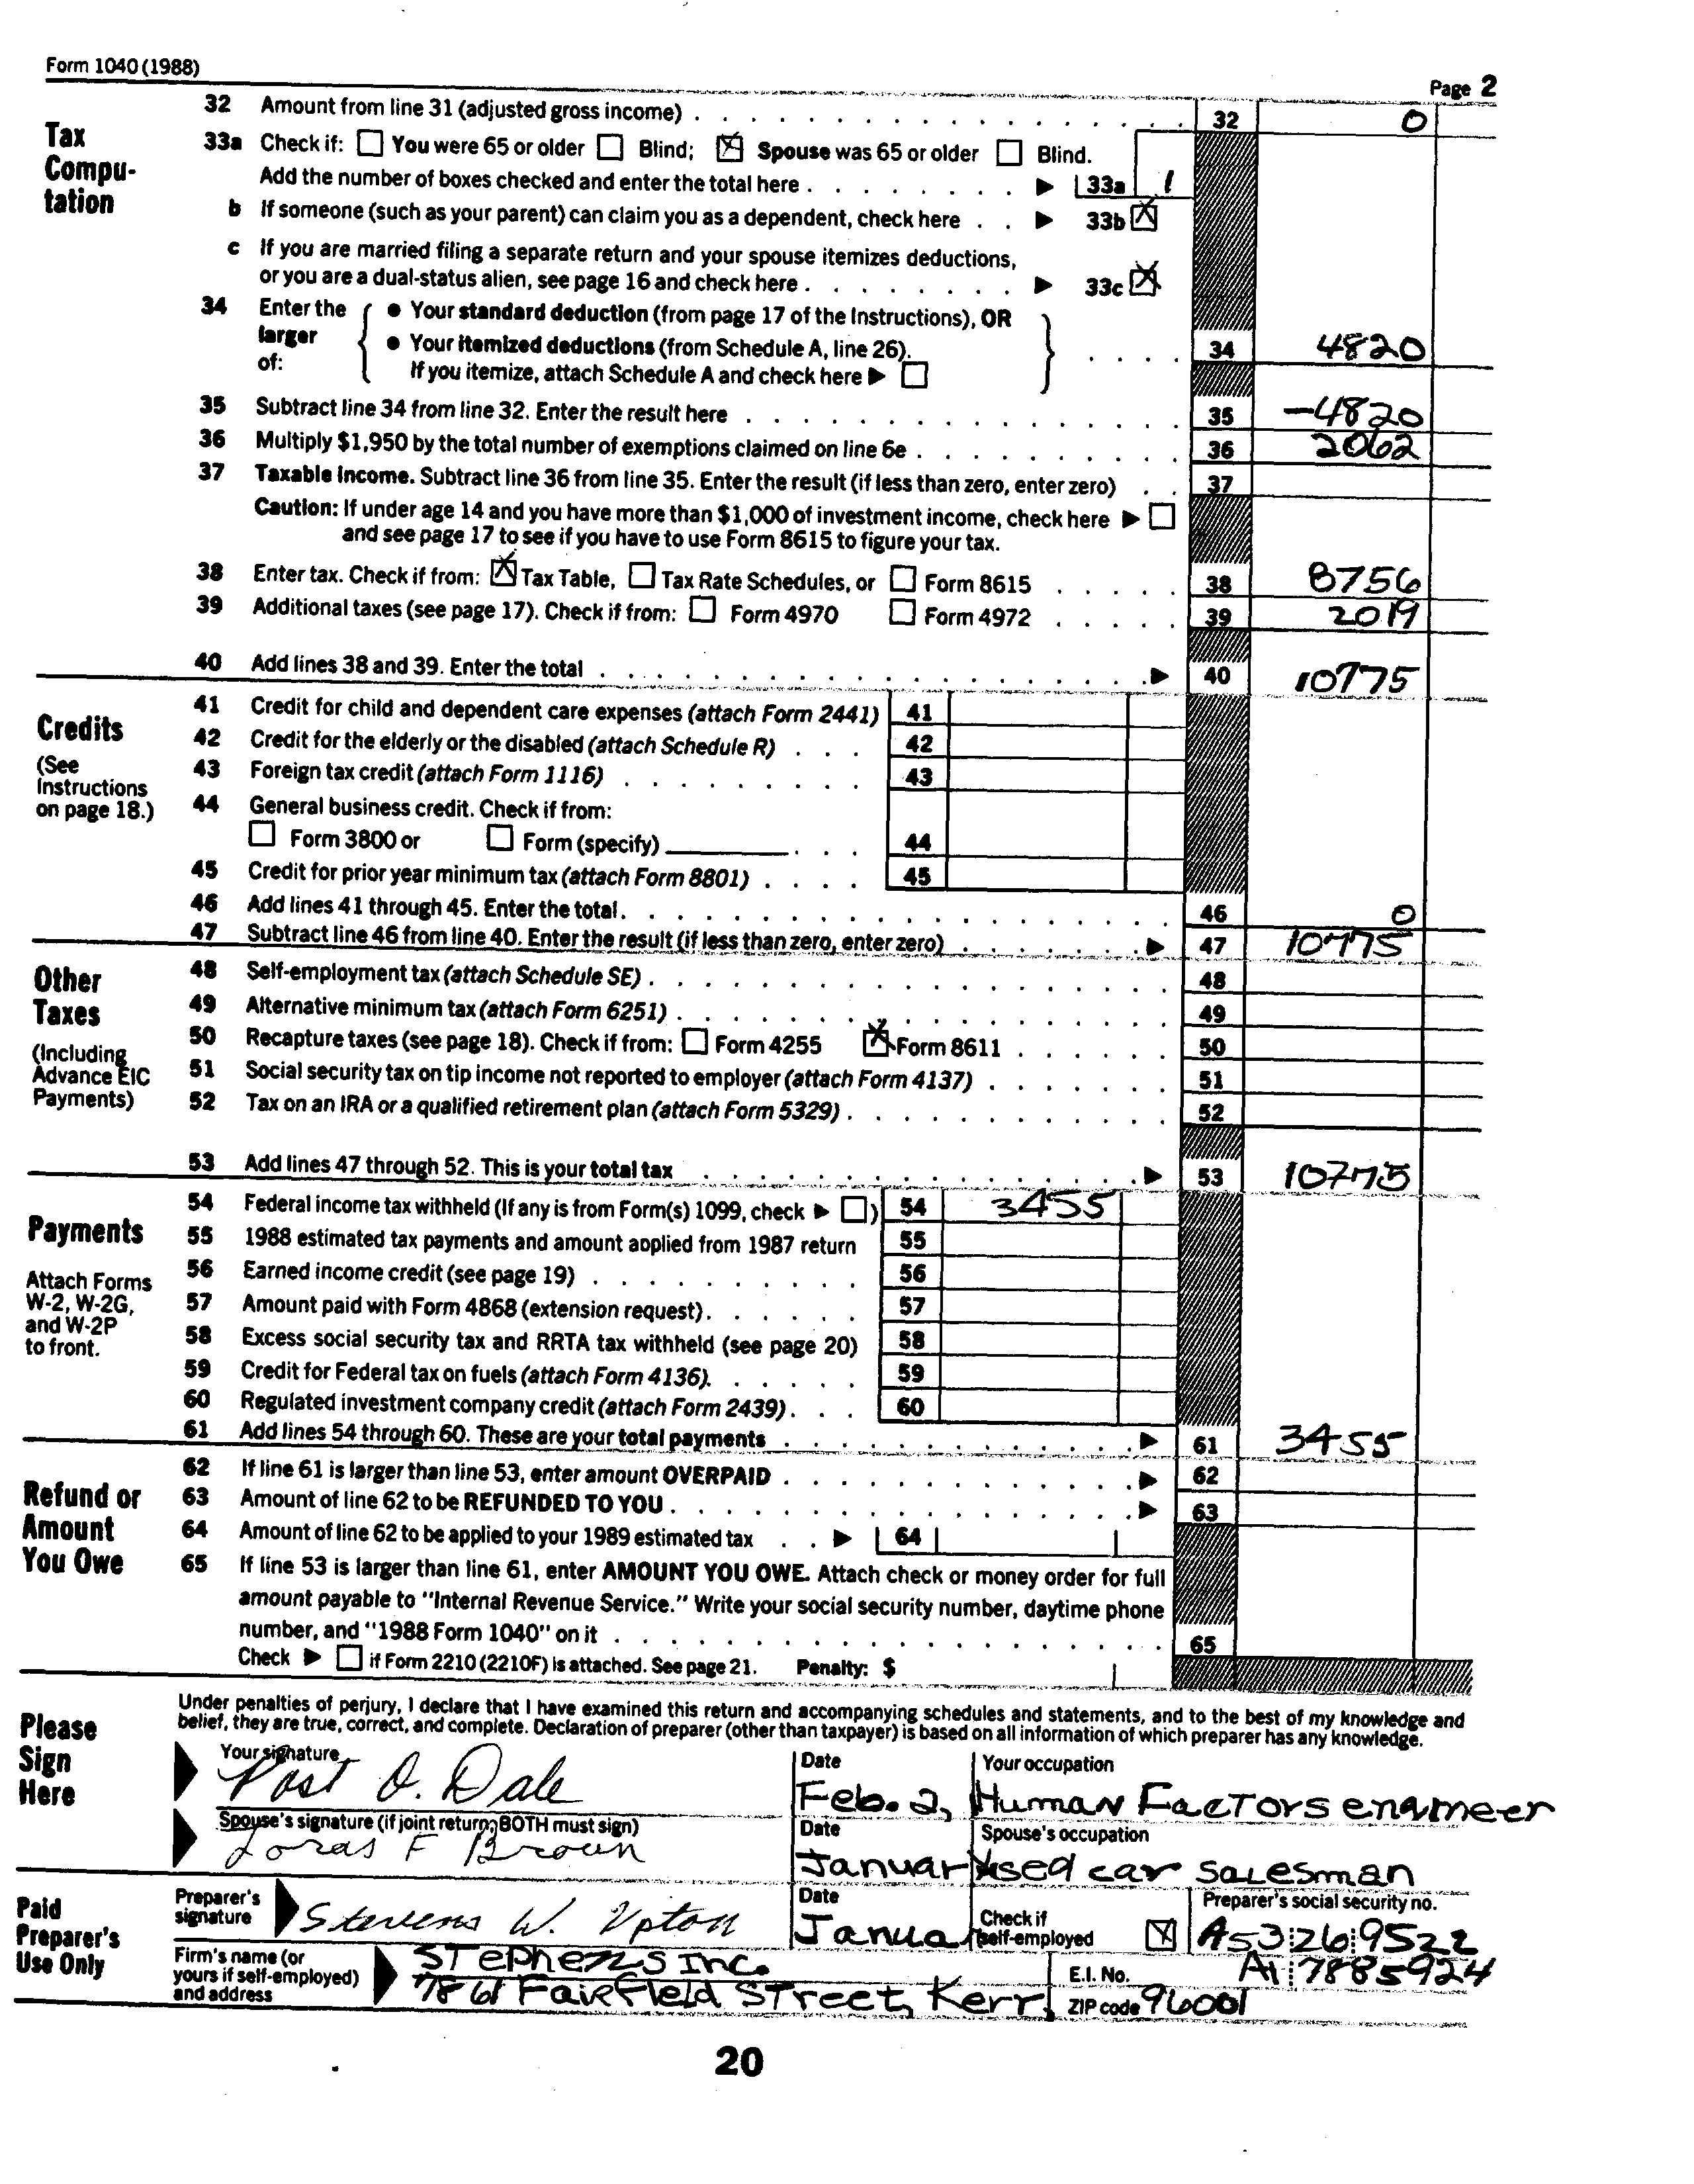 Form 1040 (1988)
Page 2
Tax Compu-tation
32 Amount from line 31 (adjusted gross income) 32 0
33a Check if: You were 65 or older Blind; X Spouse was 65 or older Blind.
Add the number of boxes checked and enter the total here 33a 1
b If someone (such as your parent) can claim you as a dependent, check here 33b X
c If you are married filing a separate return and your spouse itemizes deductions,
or you are a dual-status alien, see page 16 and check here 33c X
34 Enter the larger of:
• Your standard deduction (from page 17 of the Instructions), OR
• Your itemized deductions (from Schedule A, line 26).
If you itemize, attach Schedule A and check here
34 4820
35 Subtract line 34 from line 32. Enter the result here 35 -4820
36 Multiply $1,950 by the total number of exemptions claimed on line 6e 36 2062
37 Taxable Income. Subtract line 36 from line 35. Enter the result (if less than zero, enter zero) 37
Caution: If under age 14 and you have more than $1,000 of investment income, check here
and see page 17 to see if you have to use Form 8615 to figure your tax.
38 Enter tax. Check if from: X Tax Table, Tax Rate Schedules, or Form 8615 38 8756
39 Additional taxes (see page 17). Check if from: Form 4970 Form 4972 39 2019
40 Add lines 38 and 39. Enter the total 40 10775
Credits
(See Instructions on page 18.)
41 Credit for child and dependent care expenses (attach Form 2441) 41
42 Credit for the elderly or the disabled (attach Schedule R) 42
43 Foreign tax credit (attach Form 1116) 43
44 General business credit. Check if from:
Form 3800 or Form (specify) 44
45 Credit for prior year minimum tax (attach Form 8801) 45
46 Add lines 41 through 45. Enter the total 46 0
47 Subtract line 46 from line 40. Enter the result (if less than zero, enter zero) 47 10775
Other Taxes
(Including Advance EIC Payments)
48 Self-employment tax (attach Schedule SE) 48
49 Alternative minimum tax (attach Form 6251) 49
50 Recapture taxes (see page 18). Check if from: Form 4255 X Form 8611 50
51 Social security tax on tip income not reported to employer (attach Form 4137) 51
52 Tax on an IRA or a qualified retirement plan (attach Form 5329) 52
53 Add lines 47 through 52. This is your total tax 53 10775
Payments
Attach Forms W-2, W-2G, and W-2P to front.
54 Federal income tax withheld (If any is from Form(s) 1099, check ) 54 3455
55 1988 estimated tax payments and amount applied from 1987 return 55
56 Earned income credit (see page 19) 56
57 Amount paid with Form 4868 (extension request) 57
58 Excess social security tax and RRTA tax withheld (see page 20) 58
59 Credit for Federal tax on fuels (attach Form 4136) 59
60 Regulated investment company credit (attach Form 2439) 60
61 Add lines 54 through 60. These are your total payments 61 3455
Refund or Amount You Owe
62 If line 61 is larger than line 53, enter amount OVERPAID 62
63 Amount of line 62 to be REFUNDED TO YOU 63
64 Amount of line 62 to be applied to your 1989 estimated tax 64
65 If line 53 is larger than line 61, enter AMOUNT YOU OWE. Attach check or money order for full
amount payable to "Internal Revenue Service." Write your social security number, daytime phone
number, and "1988 Form 1040" on it 65
Check if Form 2210 (2210F) is attached. See page 21. Penalty: $
Please Sign Here
Under penalties of perjury, I declare that I have examined this return and accompanying schedules and statements, and to the best of my knowledge and
belief, they are true, correct, and complete. Declaration of preparer (other than taxpayer) is based on all information of which preparer has any knowledge.
Your signature Date Your occupation
Post O. Dale Feb. 2, Human Factors engineer
Spouse's signature (if joint return, BOTH must sign) Date Spouse's occupation
Loras F Brown January Used car salesman
Paid Preparer's Use Only
Preparer's signature Date Check if self-employed Preparer's social security no.
Stevens W. Upton Janua X A53 26 9522
Firm's name (or yours if self-employed) and address
Stephens Inc. E.I. No. A1 7885924
7861 Fairfield Street, Kerr ZIP code 96001
20